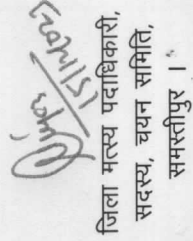 जिला मत्स्य पदाधिकारी,
सदस्य, चयन समिति,
समस्तीपुर ।